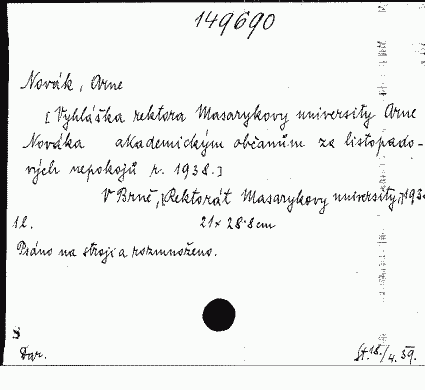 149690
Novák, Arne
[Vyhláška rektora Masarykovy university Arne
Nováka akademickým občanům za listopado-
vých nepokojů r. 1938.]
V Brně, [Rektorát Masarykovy university,] 193
1 l. 21 x 28·8 cm
Psáno na stroji a rozmnoženo.
S
Dar. St. 18./4. 59.